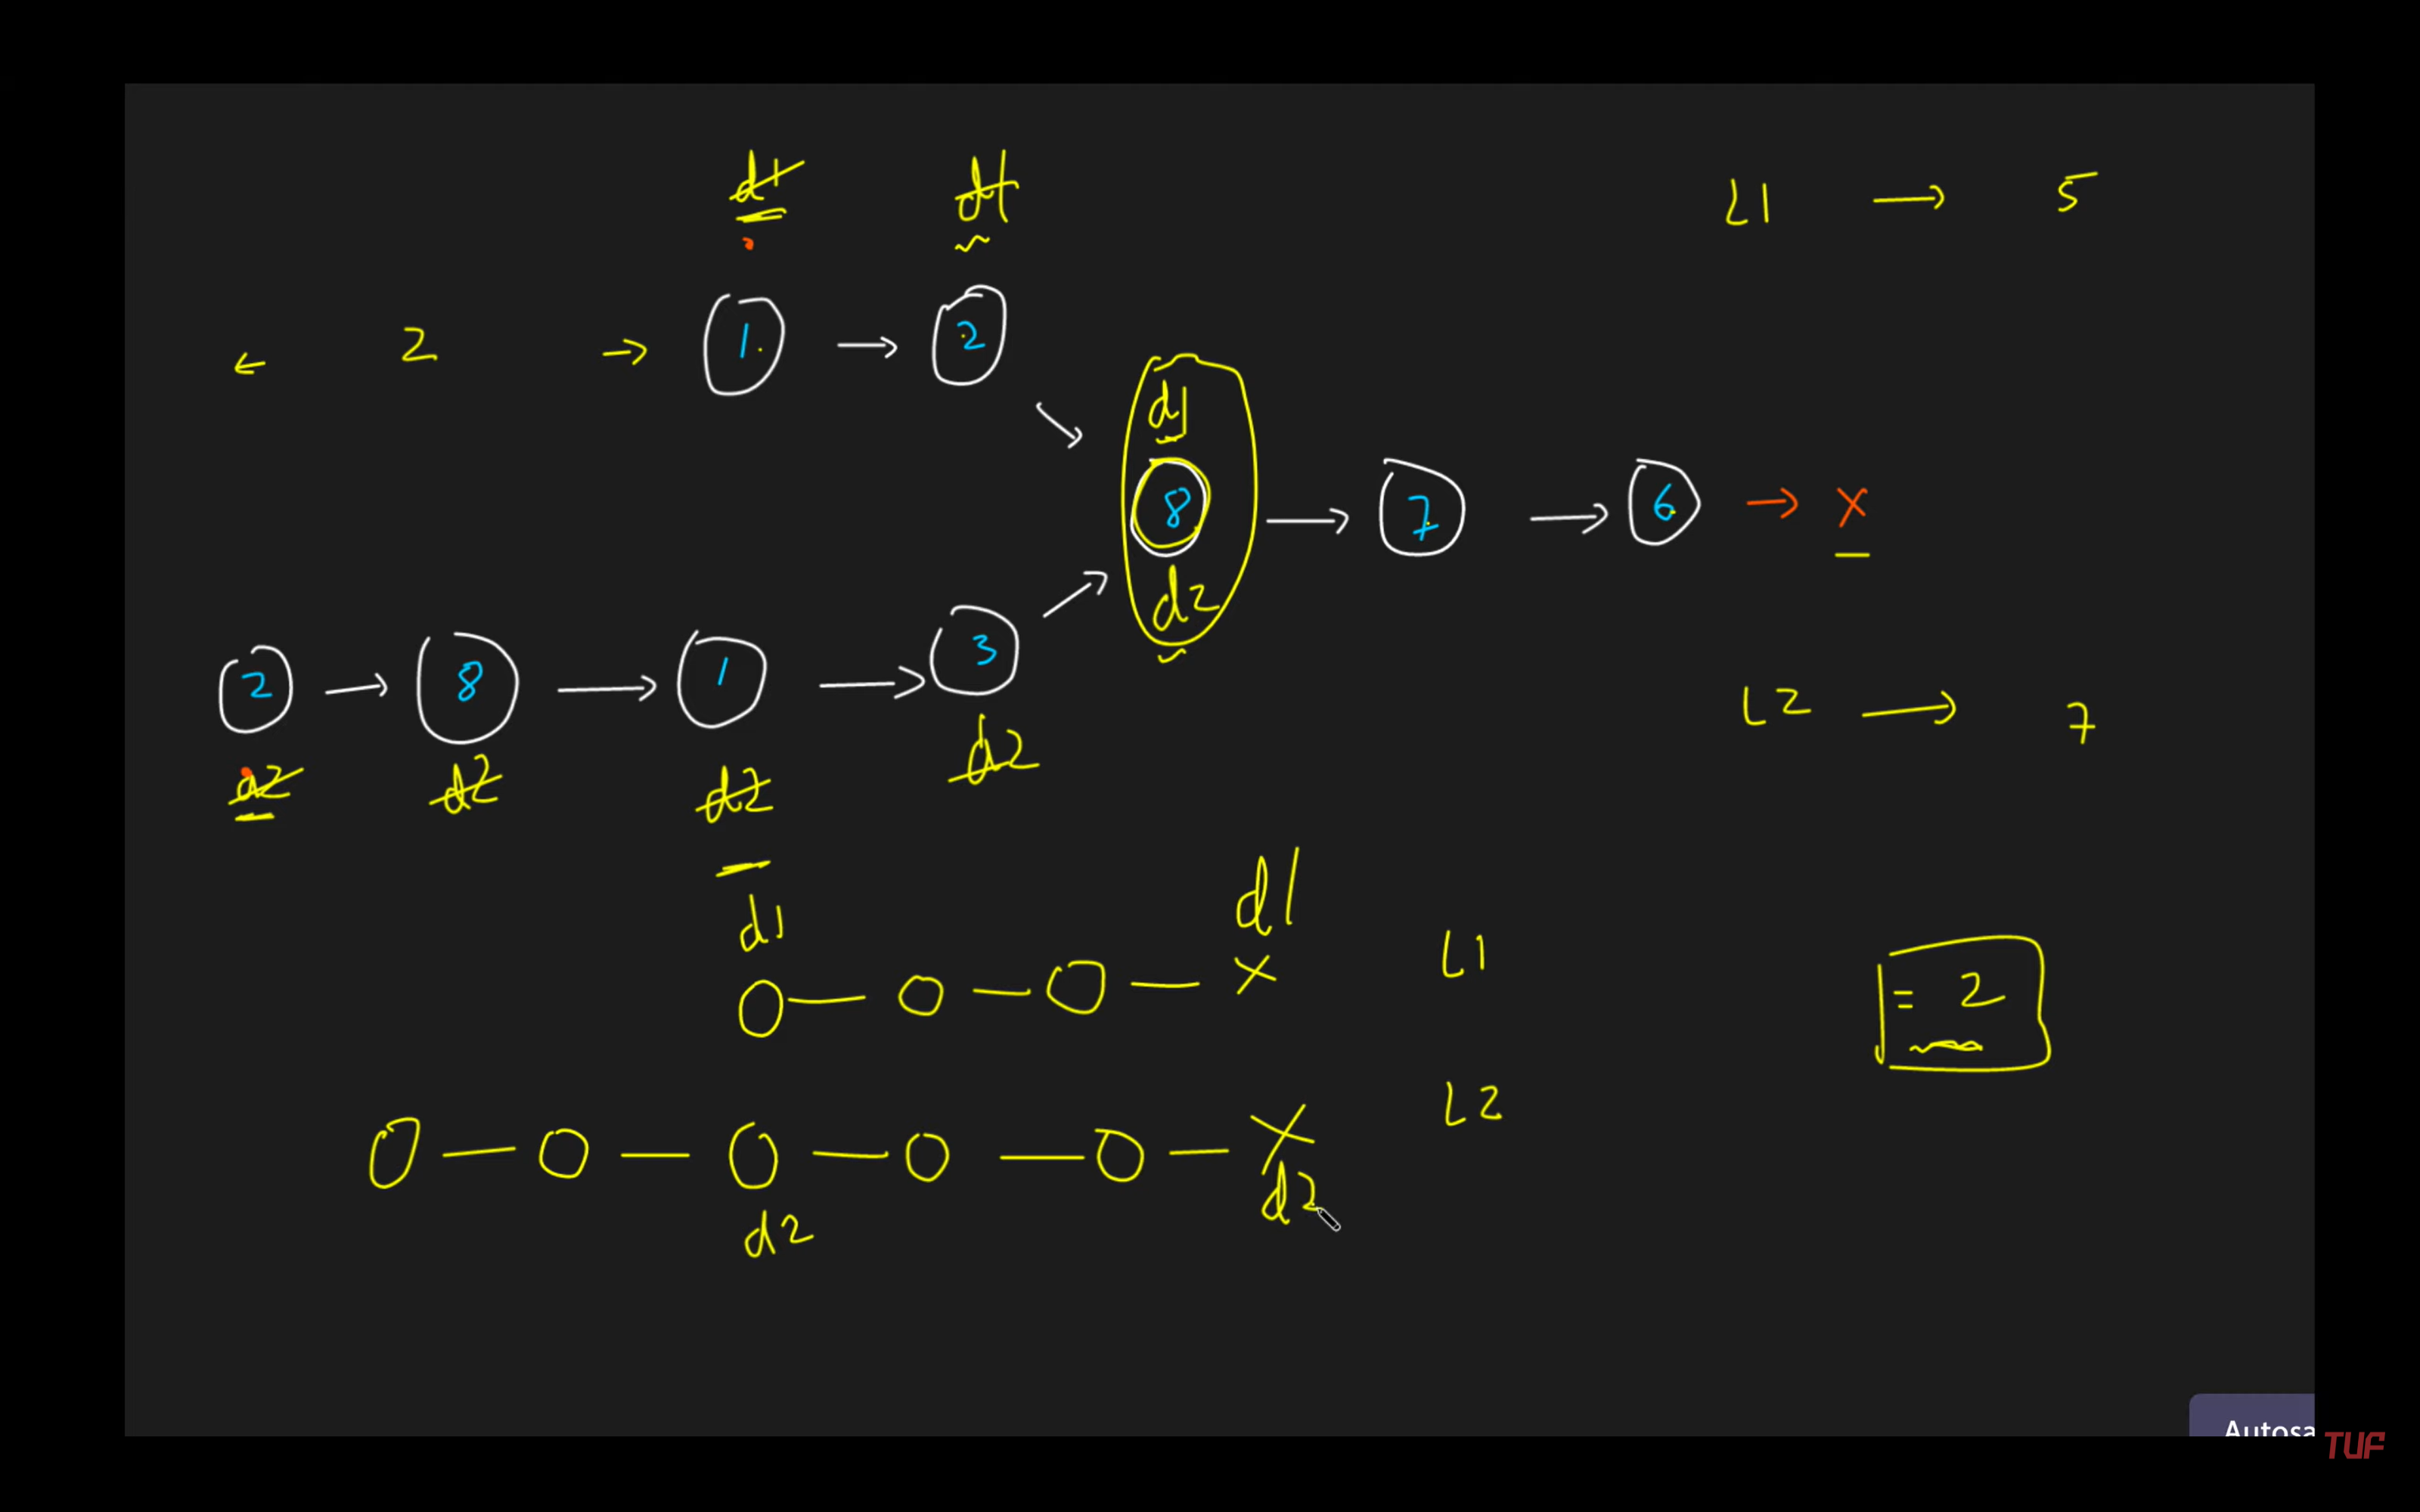 d1 d1 L1 → 5
← 2 → 1 → 2
d1
8 → 7 → 6 → X
d2
2 → 8 → 1 → 3
L2 → 7
d2 d2 d2 d2
d1 d1
O — O — O — X L1
= 2
L2
O — O — O — O — O — X
d2 d2
Autosa
TUF